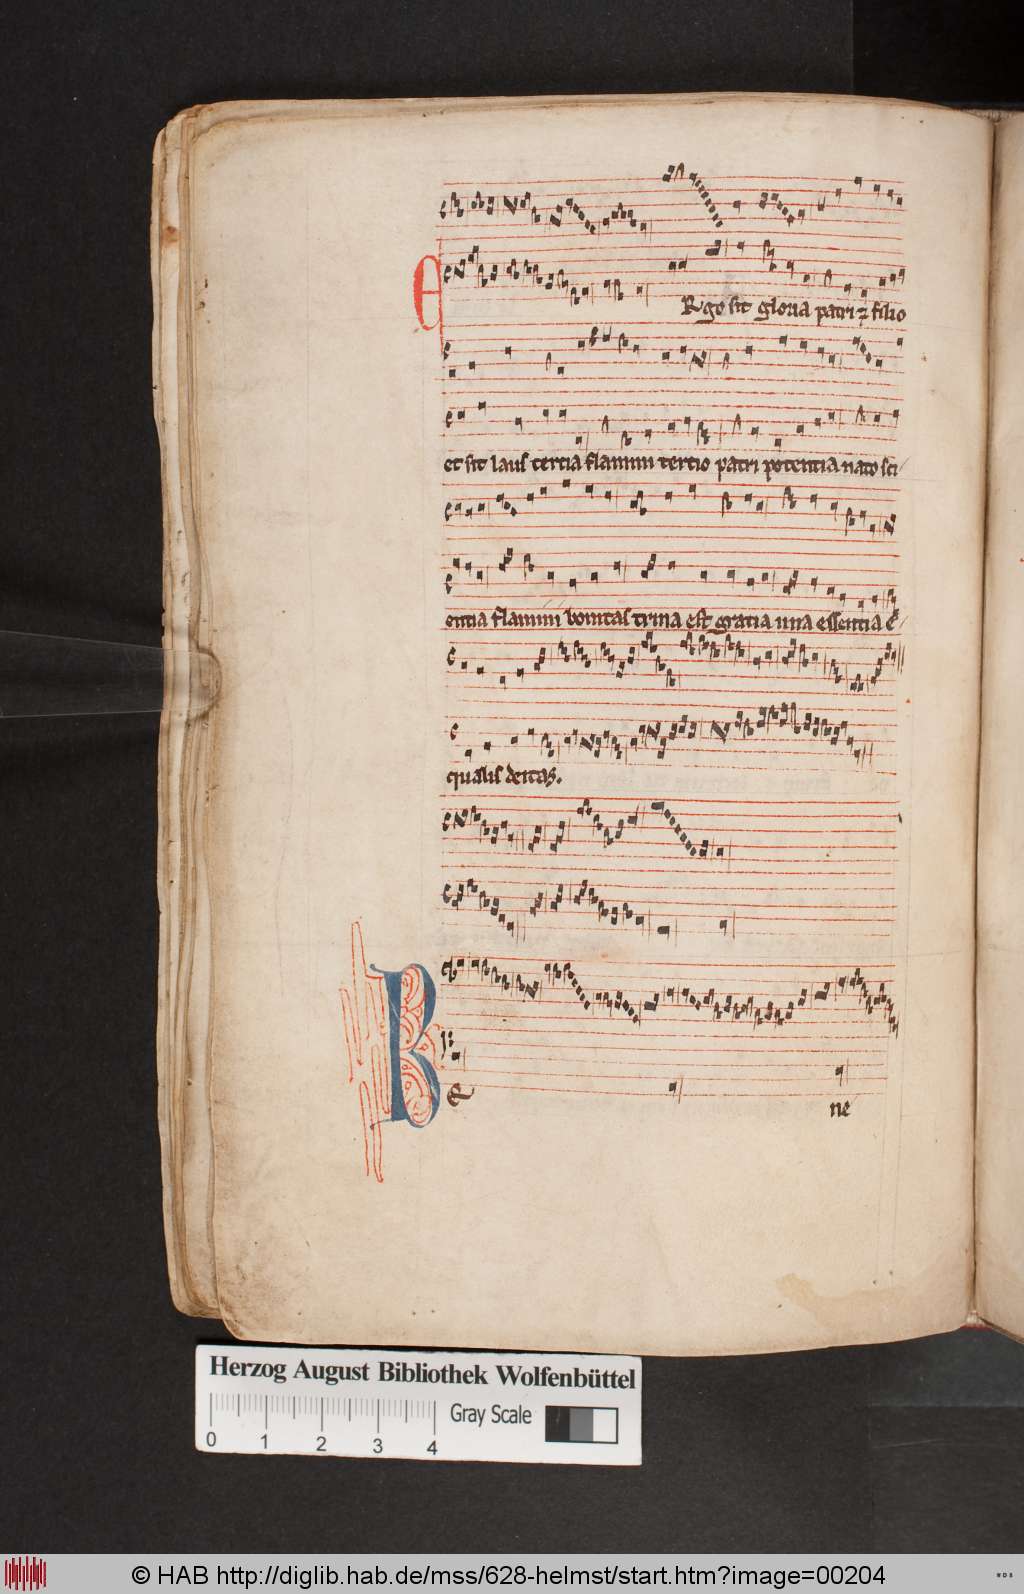 E Rgo sit gloria patri ⁊ filio
et sit laus tercia flamini tertio patri potentia nato sci
entia flamini bonitas trina est gratia una essentia e
qualis deitas.
B E ne
Herzog August Bibliothek Wolfenbüttel
Gray Scale
0 1 2 3 4
© HAB http://diglib.hab.de/mss/628-helmst/start.htm?image=00204